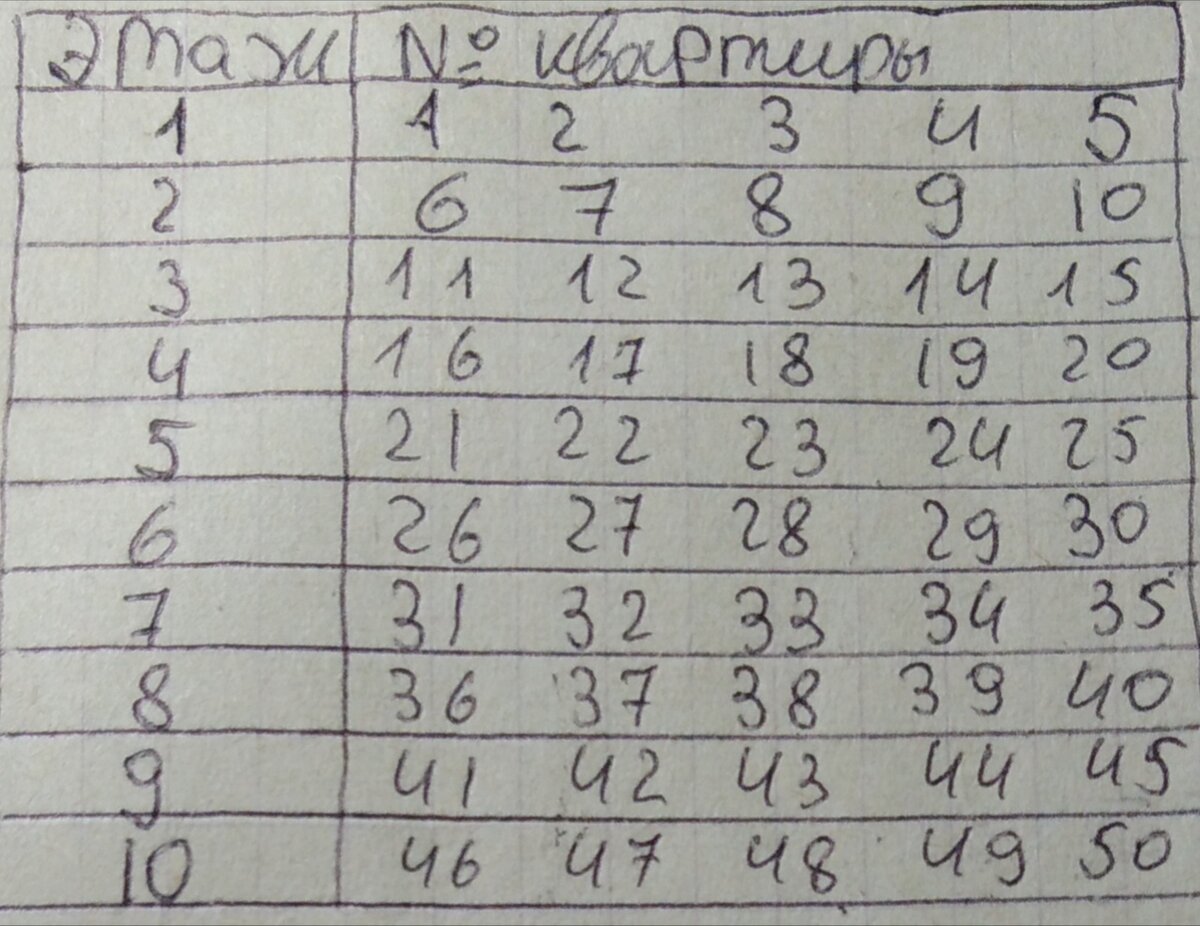 Этаж № квартиры
1 1 2 3 4 5
2 6 7 8 9 10
3 11 12 13 14 15
4 16 17 18 19 20
5 21 22 23 24 25
6 26 27 28 29 30
7 31 32 33 34 35
8 36 37 38 39 40
9 41 42 43 44 45
10 46 47 48 49 50